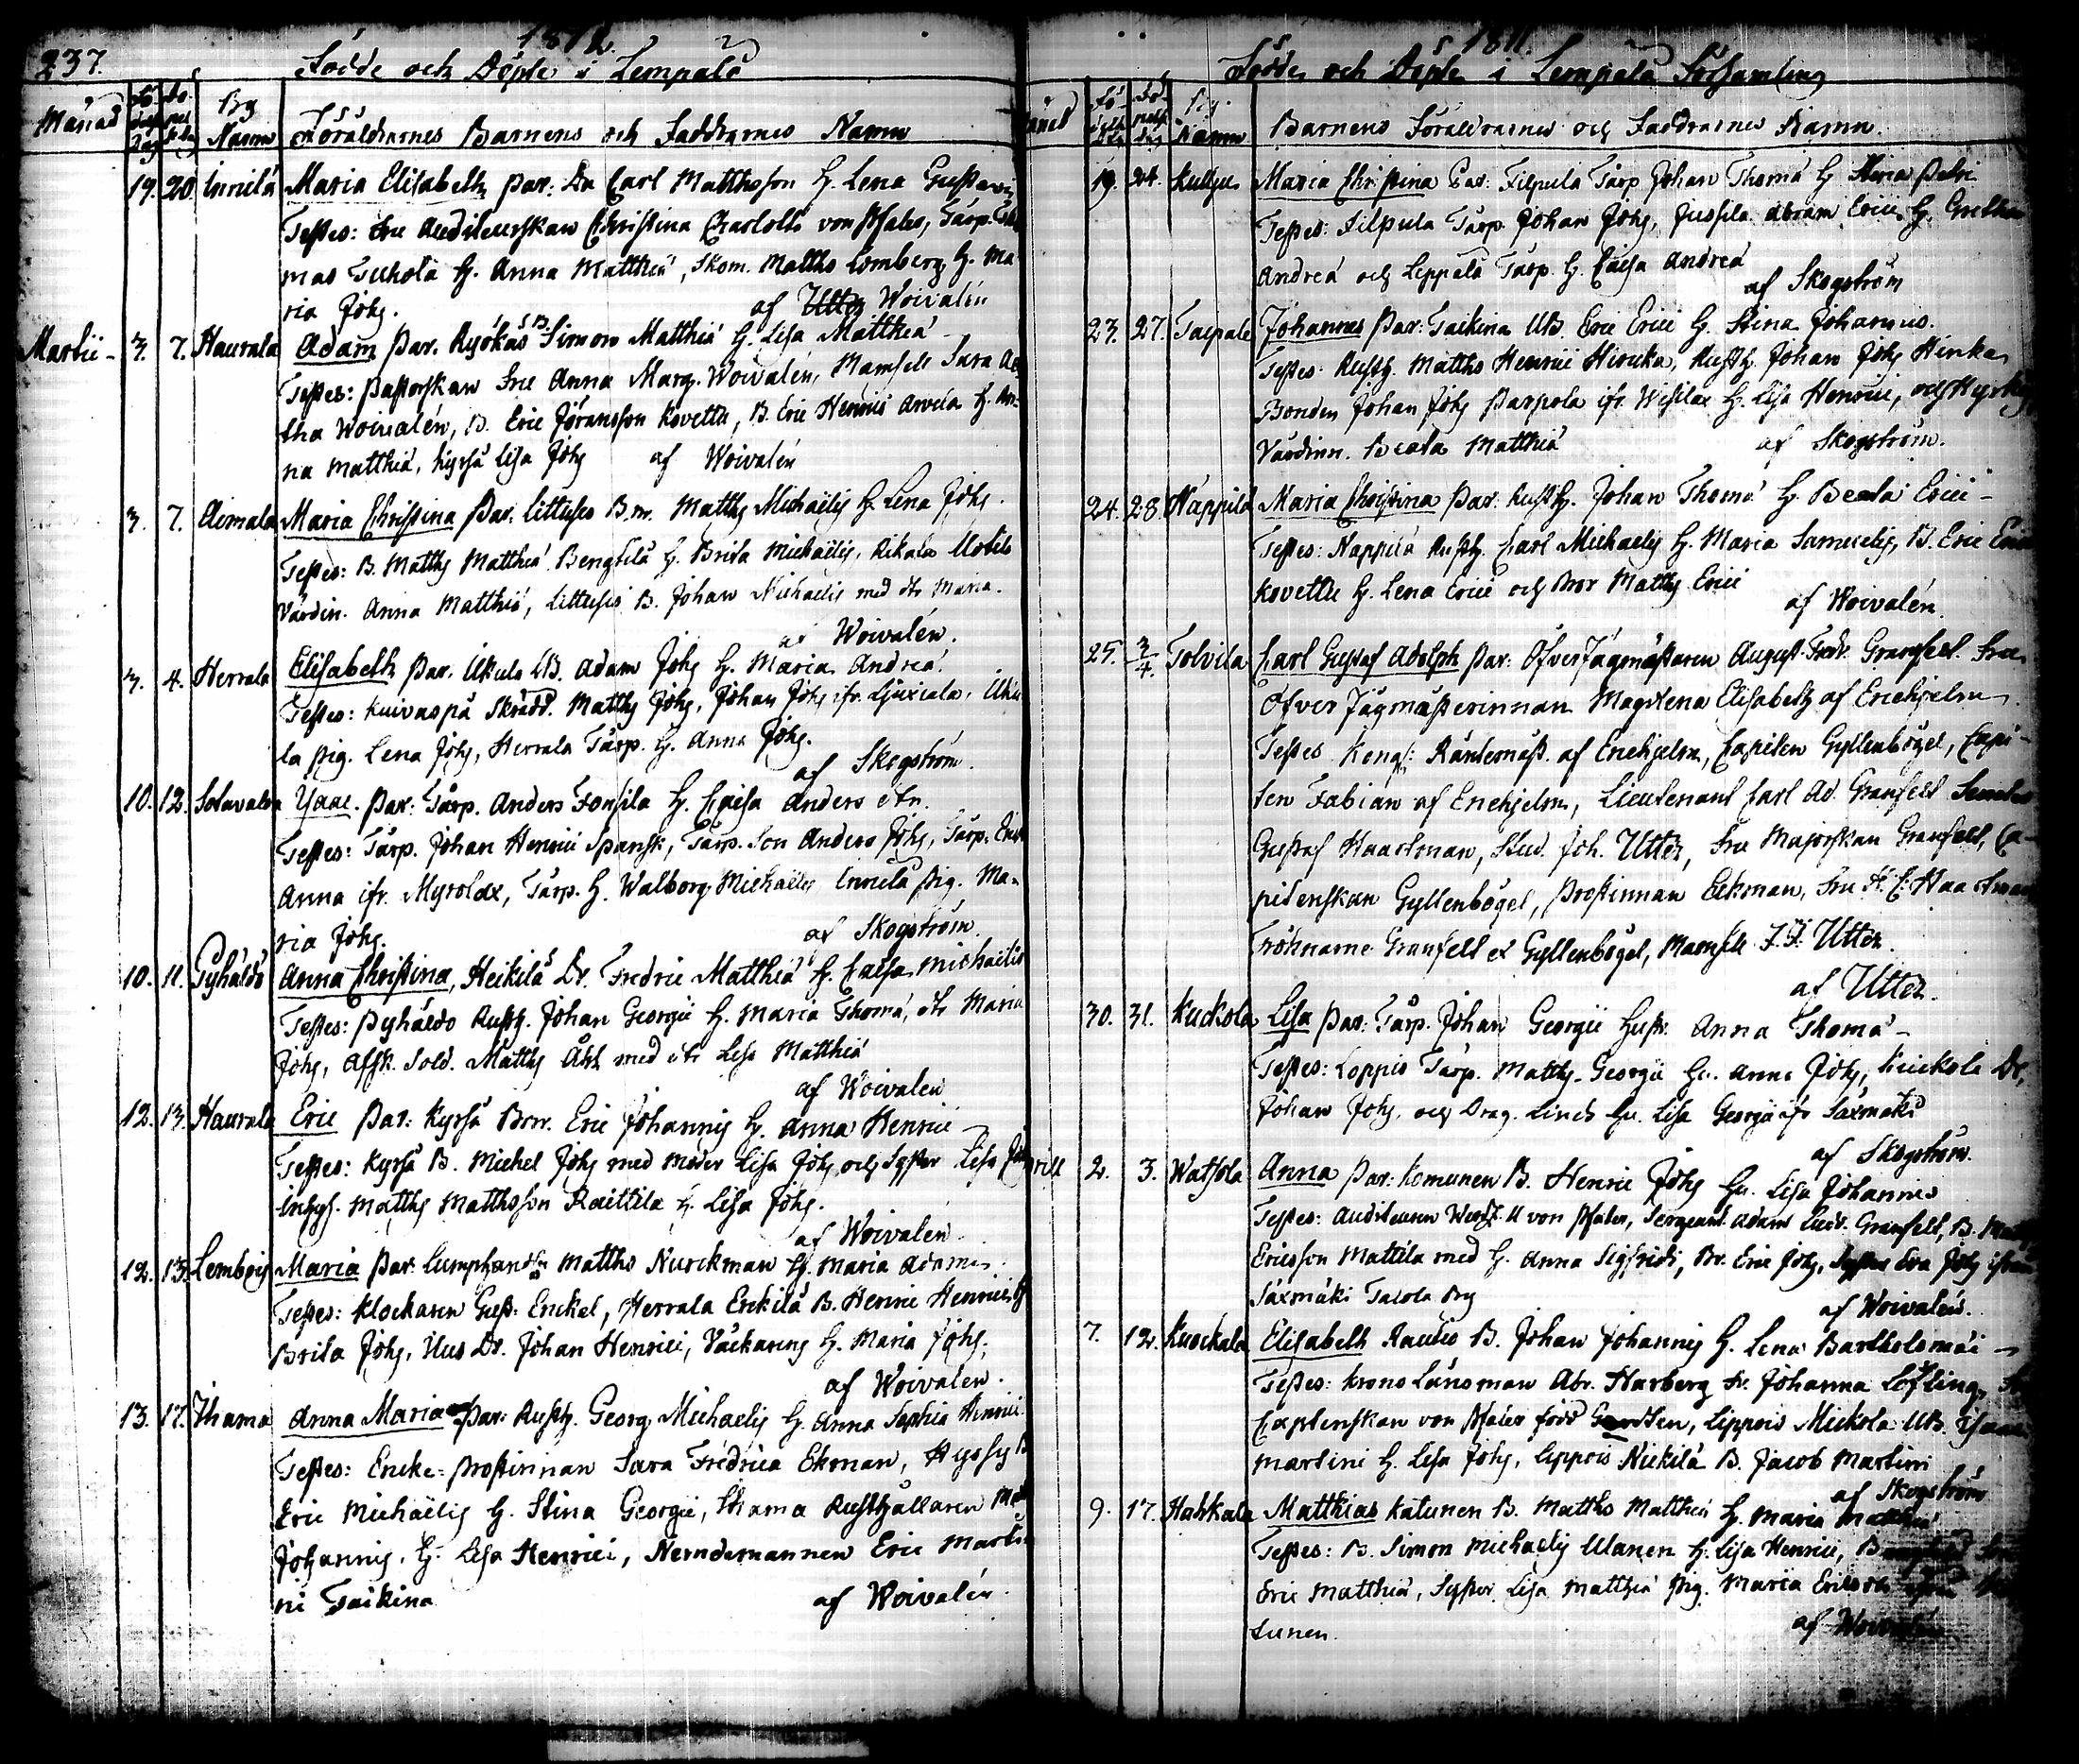 237.
1811.
Födde och Döpte i Lempälä
Månad Födelse Dag Döpelse Dag By Namn Föräldrarnes Barnens och Faddrarnes Namn
19. 20. Innilä Maria Elisabeth Par: Dr Carl Matthsson H. Lena Gustavi
Testes: Fru Auditeurskan Christina Charlotta von Pfaler, Tårp. Tho
mas Tuhola H. Anna Matthiæ, Skom. Matths Lomberg H. Ma
ria Johs. af Utter Woivalén
Martii 3. 7. Haurala Adam Par. Ryökäs B. Simon Matthiæ H. Lisa Matthiæ
Testes: Pastorskan Fru Anna Marg. Woivalén, Mamsell Sara
tha Woivalén, B. Eric Göransson Kovetta, B. Eric Henrici Arvela H. An-
na Matthiæ, Kyrsä Lisa Johs af Woivalén
3. 7. Aimala Maria Christina Par. Littuses B. m. Matths Michaëlis H. Lena Johs.
Testes: B. Matths Matthiæ Bengtilä H. Brita Michaëlis, Rikala
Värdin. Anna Matthiæ, Littuses B. Johan Michaëlis med dr Maria.
af Woivalén.
3. 4. Herrala Elisabeth Par. Ukula UB. Adam Johs H. Maria Andreæ.
Testes: Kuivaspä Skrädd. Matths Johs, Johan Johs ifr.
la Pig. Lena Johs, Herrala Tårp. H. Anna Johs.
af Skogström.
10. 12. Sotavalda Isaac. Par: Tårp. Anders Tonsila H. Caisa Anders dtr.
Testes: Tårp. Johan Henrici Spansk, Tårp. Son Anders Johs, Tårp. Enk
Anna ifr. Myrolax, Tårp. H. Walborg Michaëlis Innilä Pig. Ma-
ria Johs. af Skogström.
10. 11. Pyhäldö Anna Christina, Heikilä Dr. Fredric Matthiæ H. Caisa Michaëlis
Testes: Pyhäldö Rusth. Johan Georgii H. Maria Thomæ, dtr Maria
Johs, Afsk. Sold. Matths Åkt med dtr Lisa Matthiæ
af Woivalén
12. 13. Haurala Eric Par: Kyrsä Bror. Eric Johannis H. Anna Henrici
Testes: Kyrsä B. Michel Johs med Moder Lisa Johs och Syster Lisa Johs
Inhys. Matths Matthsson Raittila H. Lisa Johs.
af Woivalén
12. 13. Lembois Maria Par: Lumphandlr Matths Nurckman H. Maria Adami
Testes: Klockaren Gust. Enckel, Herrala Erckilä B. Henric Henrici H
Brita Johs, Uus Dr. Johan Henrici, Väckarens H. Maria Johs.
af Woivalén.
13. 17. Ihama Anna Maria Par: Rusth. Georg Michaelis H. Anna Sophia Henrici
Testes: Encke-Prostinnan Sara Fredrica Ekman,
Eric Michaëlis H. Stina Georgii, Ihama Rusthållaren
Johannis, H. Lisa Henrici, Nämdemannen Eric Marti
ni Taikina af Woivalén.
1811.
Födde och Döpte i Lempälä Församling
Månad Födelse Dag Döpelse Dag By Namn Barnens Föräldrarnes och Faddrarnes Namn.
19. 24. Kuljus Maria Christina Par: Filpula Tårp Johan Thomæ H Maria Petri
Testes: Filpula Tårp. Johan Johs, Jussila Abram Erici H. Gretha
Andreæ och Leppälä Tårp. H. Caisa Andreæ
af Skogström
23. 27. Taipale Johannes Par: Taikina UB. Eric Erici H. Stina Johannis.
Testes: Rusth. Matths Henrici Hinuka, Rusth. Johan Johs Hinka
Bonden Johan Johs Parpola ifr. Wesilax H. Lisa Henrici, och
Värdinn. Beata Matthiæ af Skogström.
24. 28. Nappila Maria Christina Par: Rusth. Johan Thomæ H Beata Erici
Testes: Nappila Rusth. Carl Michaelis H. Maria Samuelis, B. Eric
Kovetta H. Lena Erici och Bror Matths Erici
af Woivalén.
25. 3/4. Tolvila Carl Gustaf Adolph Par: Öfverjägmästaren August Fredr. Granfelt Fru
Öfver Jägmästerinnan Magdlena Elisabeth af Enehjelm
Testes Kongl: Räntemäst. af Enehjelm, Capiten Gyllenbögel, Capi-
ten Fabian af Enehjelm, Lieutenant Carl Ad. Granfelt
Gustaf Haartman, Stud. Joh. Utter, Fru Majorskan Granfelt, Ca-
pitenskan Gyllenbögel, Prostinnan Eekman, Fru H. C. Haartman
Fröknarne Granfelt et Gyllenbögel, Mamsell Utter.
af Utter.
30. 31. Kuckola Lisa Par: Tårp. Johan Georgii Hustr. Anna Thomæ
Testes: Loppis Tårp. Matths Georgii Hu. Anna Johs, Kuckola Dr.
Johan Johs. och Drag. Linds Hu. Lisa Georgii ifr Säxmäki
af Skogström.
2. 3. Watsola Anna Par: Komunen B. Henric Johs Hu. Lisa Johannis
Testes: Auditeuren von Pfaler, Sergeant Adam Ludv. Granfelt, B.
Ericsson Mattila med H. Anna Sigfridi, Br. Eric Johs, Syster Eva Johs ifrån
Säxmäki Taiola By af Woivalén.
7. 12. Kuockala Elisabeth Rautio B. Johan Johannis H. Lena Bartholomæi
Testes: Krono Länsman Abr. Harberg Fr. Johanna Löfling,
Captenskan von Pfaler född, Lippois Mickola UB. Isaac
Martini H. Lisa Johs, Lippois Nickilä B. Jacob Martini
af Skogström
9. 17. Hakkala Matthias Katunen B. Matths Matthiæ H. Maria Matthiæ
Testes: B. Simon Michaelis Ulanen H. Lisa Henrici,
Eric Matthiæ, Syster Lisa Matthiæ Pig. Maria
tunen. af Woivalén